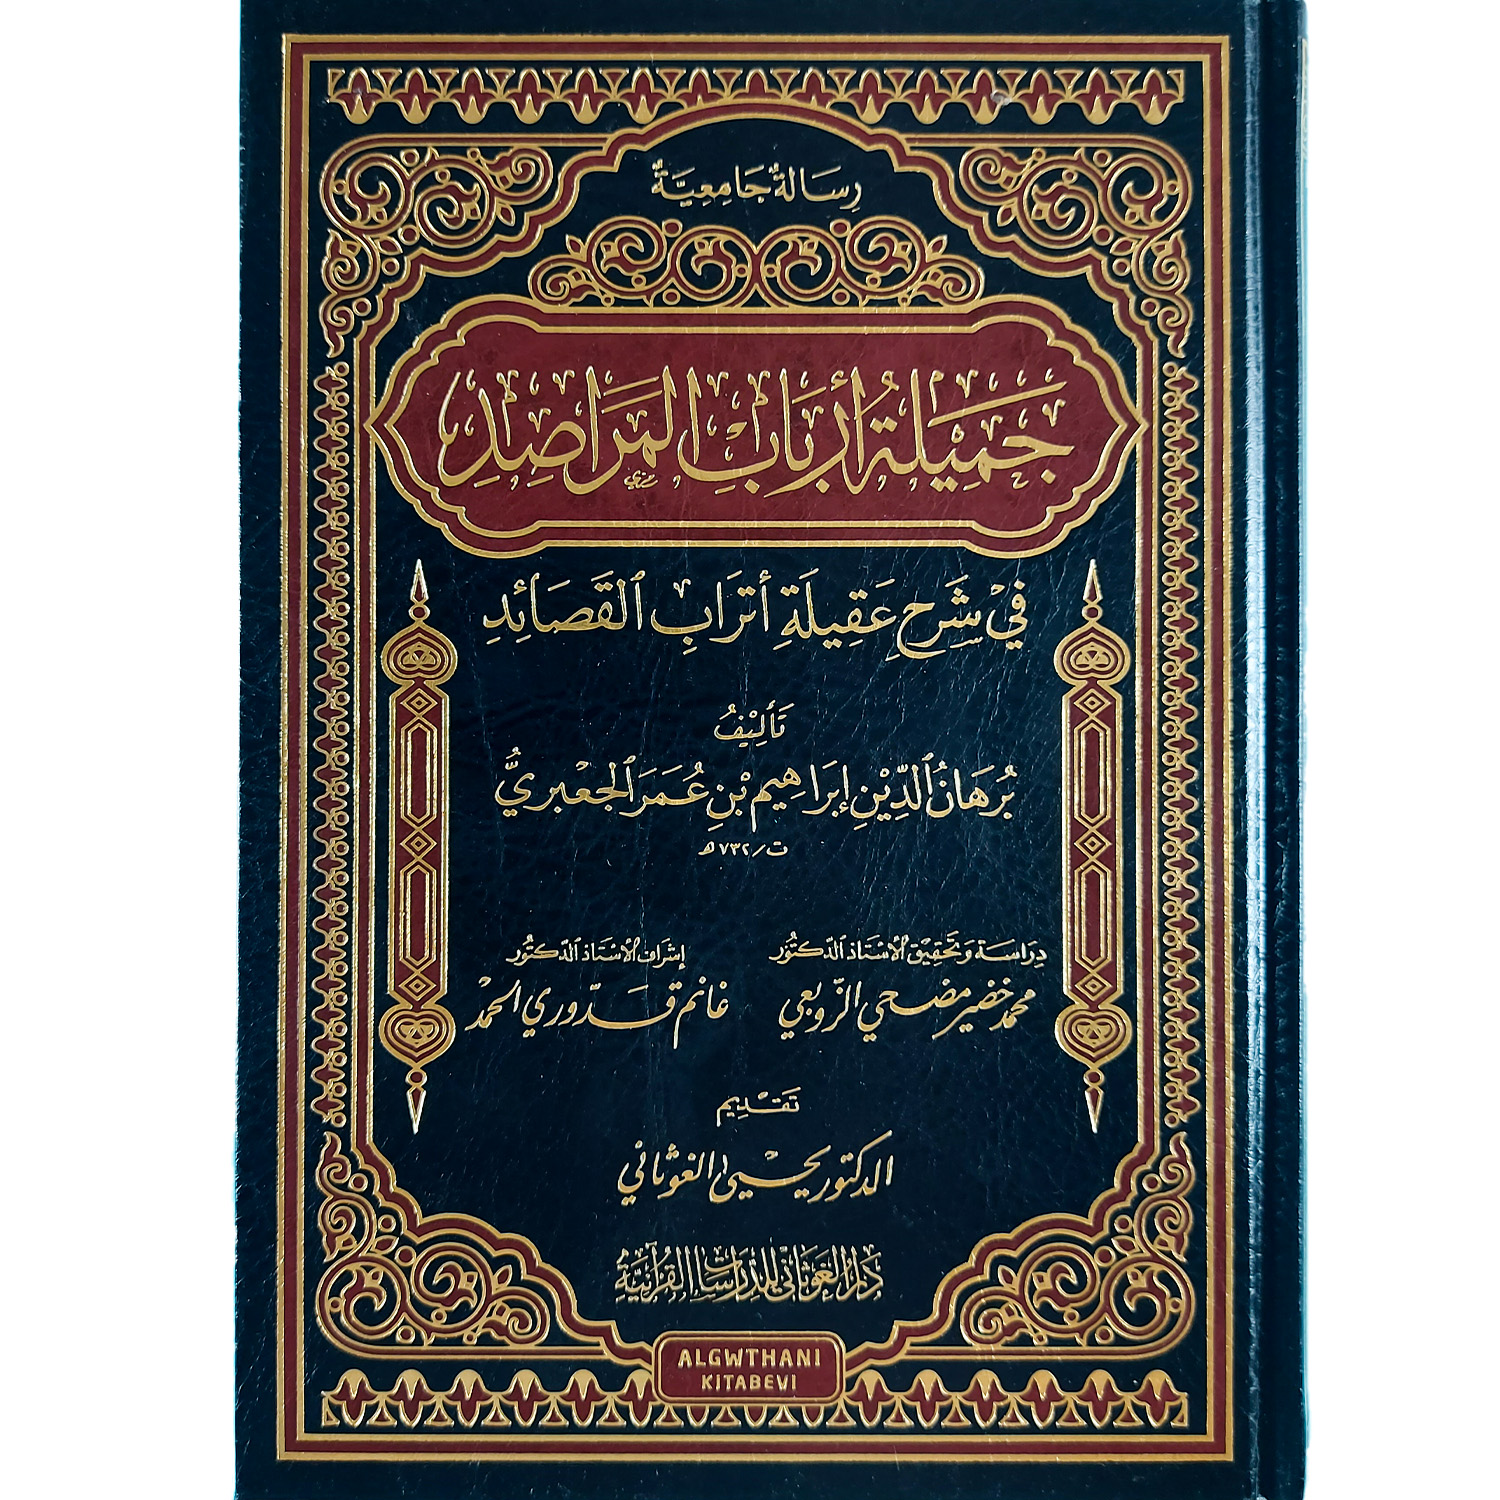 رِسَالَةٌ جَامِعِيَّةٌ
جَمِيلَةُ أَرْبَابِ المَرَاصِدِ
فِي شَرْحِ عَقِيلَةِ أَتْرَابِ القَصَائِدِ
تَأْلِيْفُ
بُرْهَانُ الدِّيْنِ إِبْرَاهِيم بْنِ عُمَرَ الجَعْبَرِيُّ
ت / ٧٣٢ هـ
دِرَاسَة وَتَحْقِيْق الأُسْتَاذ الدّكتُوْر
إشراف الأُسْتَاذ الدّكتُوْر
محمد خضير مضحي الزّوبعي
غانم قدّوري الحمْد
تَقْدِيم
الدكتور يحيى الغوثاني
دَارُ الغَوْثَانِي لِلدِّرَاسَاتِ القُرْآنِيَّةِ
ALGWTHANI
KİTABEVİ